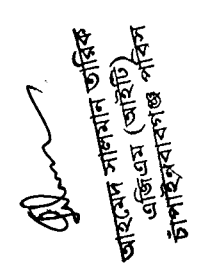 আহমেদ সালমান তারিক
এজিএম (আইটি)
চাঁপাইনবাবগঞ্জ পবিস